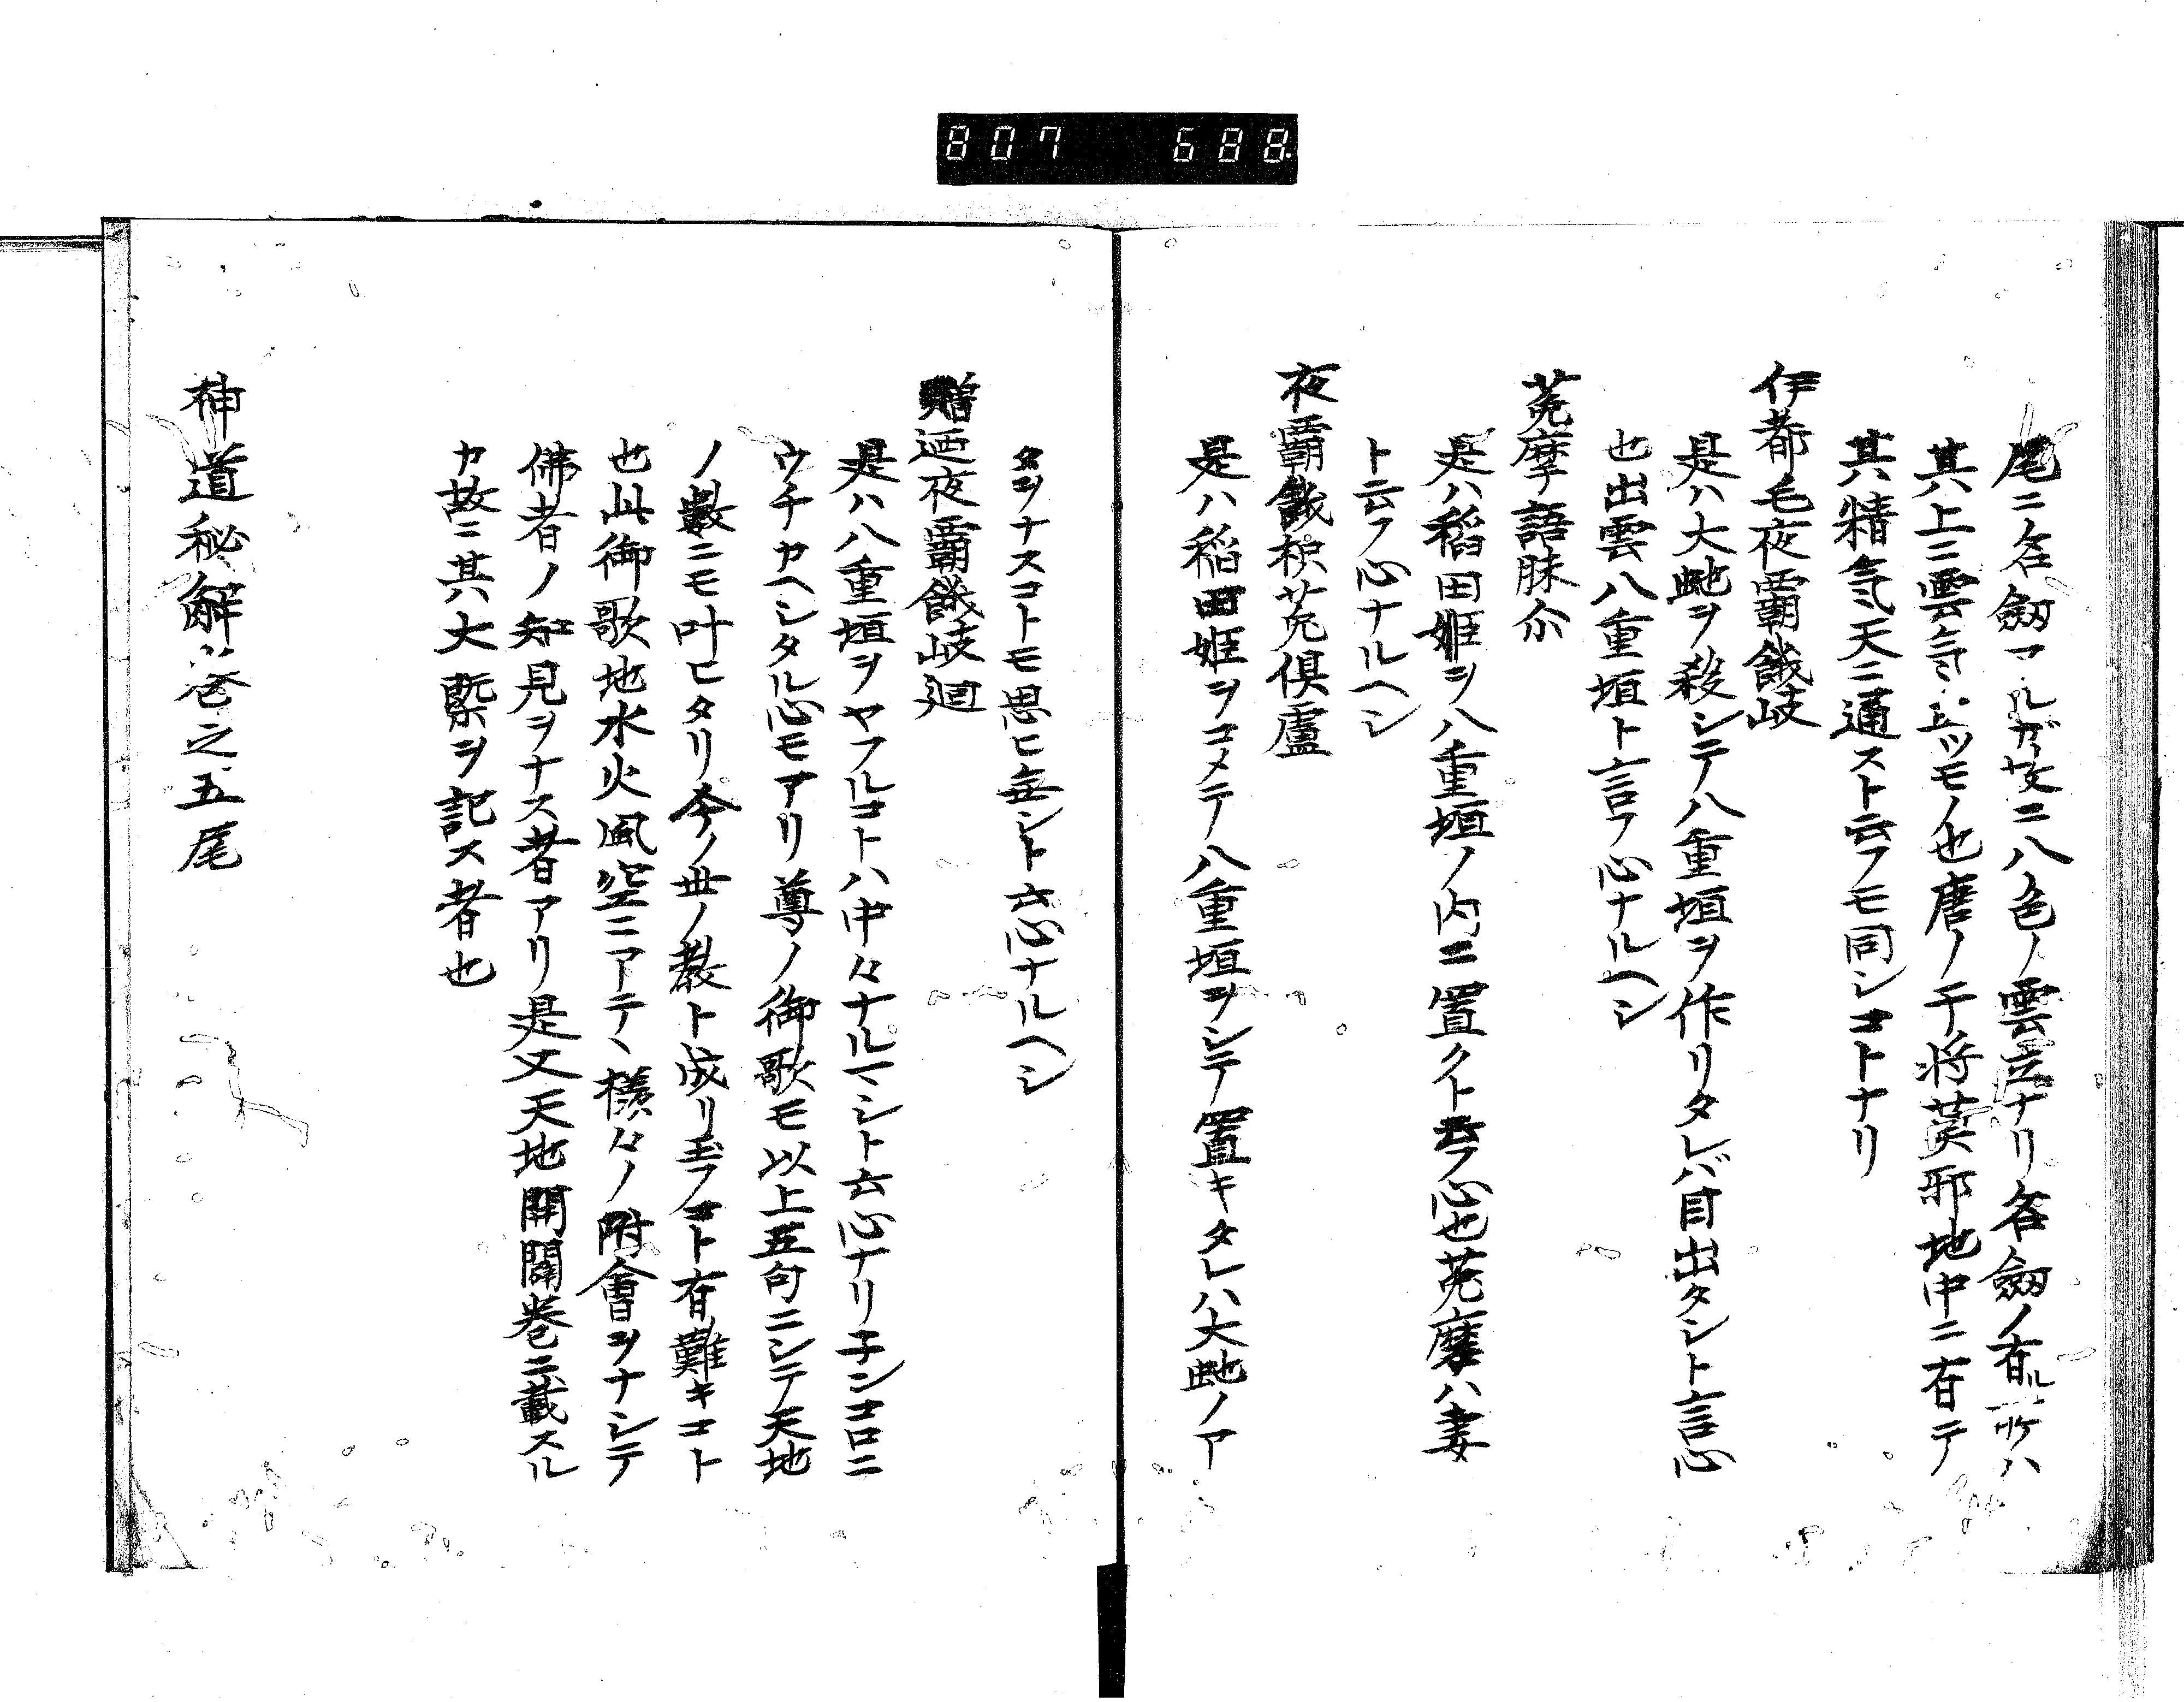 807 688
尾ニ名劔アルガ故ニ八色ノ雲立ナリ各劔ノ有ル所ハ
其上ニ雲気立ツモノ也唐ノ干将莫邪地中ニ有テ
其精気天ニ通スト云フモ同シコトナリ
伊都毛夜覇餓岐
是ハ大虵ヲ殺シテ八重垣ヲ作リタレバ目出タシト言心
也出雲八重垣ト言フ心ナルヘシ
菟摩語昧尒
是ハ稲田姫ヲ八重垣ノ内ニ置クト云フ心也菟摩ハ妻
ト云フ心ナルヘシ
夜覇餓枳菟倶盧
是ハ稲田姫ヲコメテ八重垣ヲシテ置キタレハ大虵ノア
タヲナスコトモ思ヒ無シト云心ナルヘシ
贈廼夜覇餓岐廻
是ハ八重垣ヲヤフルコトハ中々ナルマシト云心ナリ子ンコロニ
ウチカヘシタル心モアリ尊ノ御歌モ以上五句ニシテ天地
ノ數ニモ叶ヒタリ今ノ世ノ教ト成リ玉フコト有難キコト
也此御歌地水火風空ニアテヽ様々ノ附會ヲナシテ
佛者ノ知見ヲナス者アリ是又天地開闢巻ニ載スル
カ故ニ其大槩ヲ記ス者也
神道秘解巻之五尾